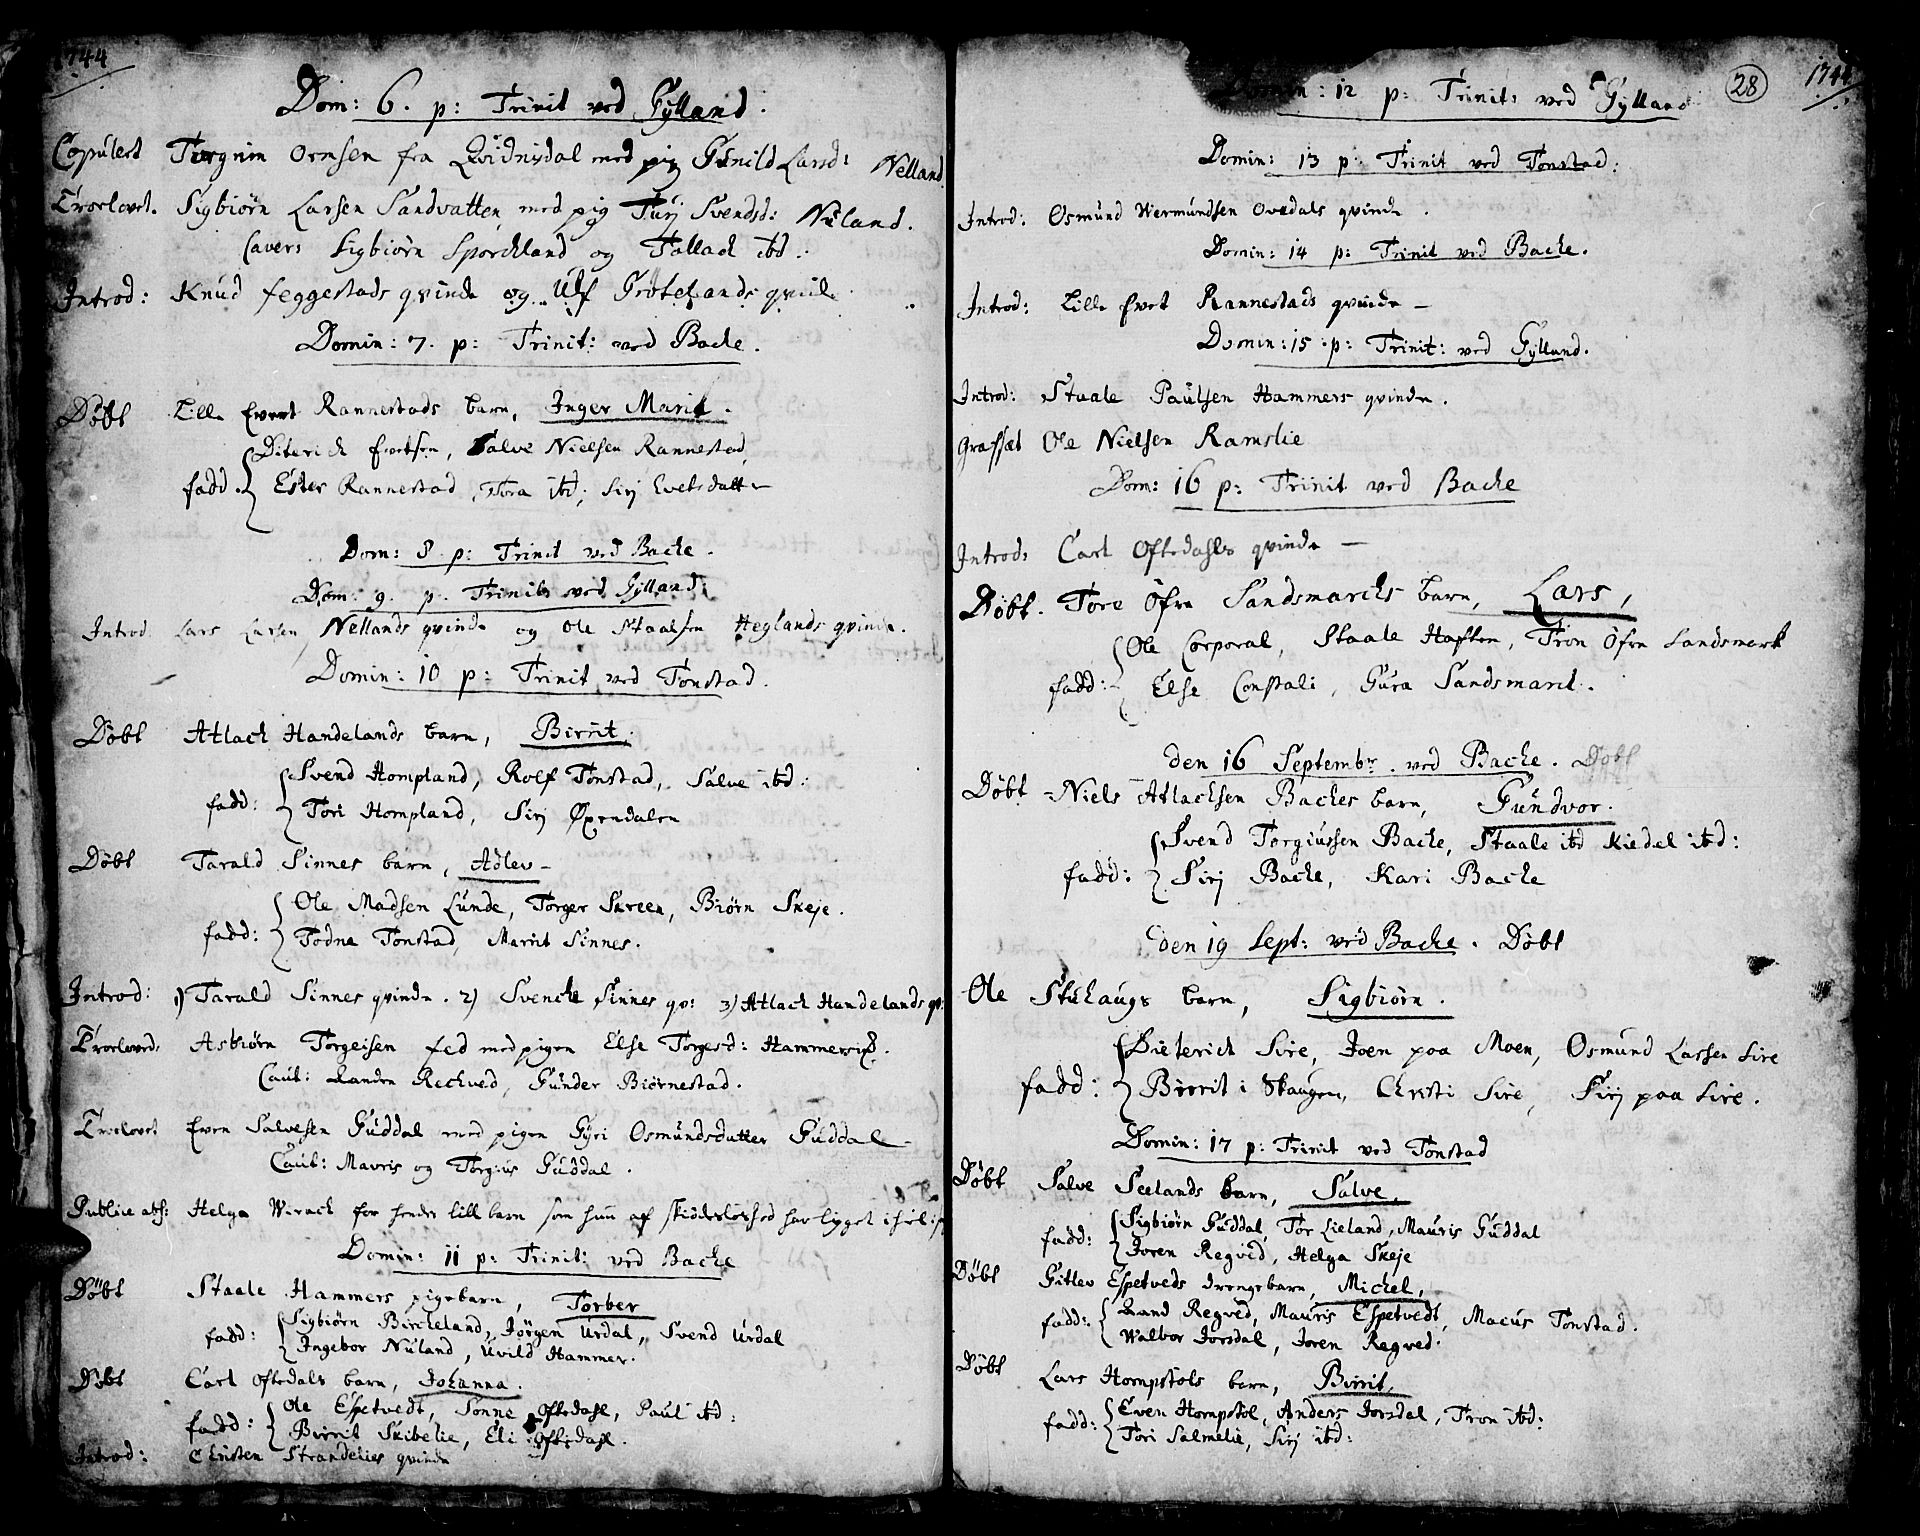 1744
Dom: 6. p: Trinit ved Gylland.
Copulert Torgrim Ormsen fra Qvidnisdal med pig Gunild Larsd: Nelland
Troelovet. Sigbiørn Larsen Sandvatten med pig Turj Svendsd: Nuland.
Cavers Sigbiørn Sporckland og Tallach ibd.
Introd: Knud Feggestads qvinde og Ulf Grøtelands qvinde
Domin: 7. p: Trinit: ved Backe.
Døbt Lille Evert Rannestads barn, Inger Marit.
Diterich Evertsen, Salve Nielsen Rannestad,
fadd. Ester Rannestad, Tora ibd; Sirj Evertsdatt
Dom: 8. p: Trinit ved Backe.
Dom: 9. p. Trinit: ved Gylland:
Introd. Lars Larsen Nellands qvinde og Ole Staalsen Heglands qvinde.
Domin: 10 p: Trinit ved Tonstad.
Døbt Atlach Handelands barn, Birrit.
Svend Hompland, Rolf Tonstad, Salve ibd:
fadd: Tori Hompland, Sirj Øxendalen
Døbt Tarald Sinnes barn, Adlev
Ole Madsen Lunde, Torger Skreen, Biørn Skeje.
fadd: Todne Tonstad, Marrit Sinnes.
Introd: 1) Tarald Sinnes qvinde. 2) Svencke Sinnes qv: 3) Atlach Handelands qv:
Troeloved. Asbiørn Torgeisen fed med pigen Else Torgesd: Hammersmd.
Caut: Randen Reckved, Gunder Biørnestad.
Troelovet Even Salvesen Guddal med pigen Gyri Osmundsdatter Guddal
Caut: Mauris og Torgius Guddal.
Publice abs: Helga Wirach for hendes lille barn som hun af skiødesløshed har ligget ihiel:
Domin: 11 p: Trinit: ved Backe
Døbt Staale Hammers pigebarn, Torber
Sigbiørn Bircheland, Jørgen Urdal, Svend Urdal
fadd: Ingebor Nuland, Uvild Hammer.
Døbt Carl Oftedals barn, Johanna.
Ole Espetvedt, Tonne Oftedahl, Paul ibd:
fadd: Birrit Skibelie, Eli Oftedahl.
Introd: Christen Strandelies qvinde
28
1744
Domin: 12 p: Trinit: ved Gylland
Domin: 13 p: Trinit ved Tonstad:
Introd: Osmund Wermundsen Ovedals qvinde.
Domin: 14 p: Trinit ved Backe.
Introd: Lille Evert Rannestads qvinde
Domin: 15. p: Trinit: ved Gylland.
Introd: Staale Paulsen Hammers qvinde.
Grafsæt Ole Nielsen Ramslie
Dom: 16 p: Trinit ved Backe
Introd: Carl Oftedahls qvinde
Døbt. Tore Øfre Sandsmarcks barn, Lars,
Ole Corporal, Staale Haften, Tron Øfre Sandsmark
fadd: Else Constali, Gura Sandsmarck.
den 16 Septembr. ved Backe. Døbt
Døbt Niels Atlachsen Backes barn, Gundvor.
Svend Torgiussen Backe, Staale ibd Kiedel ibd:
fadd: Sirj Backe, Kari Backe
den 19 Sept: ved Backe. Døbt
Ole Stuhaugs barn, Sigbiørn.
Dieterich Sire, Joen paa Moen, Osmund Lassen Sire
fadd: Birrit i Skaugen, Christi Sire, Sirj paa Sire.
Domin: 17 p: Trinit ved Tonstad
Døbt Salve Seelands barn, Salve,
Sigbiørn Guddal, Tor Lieland, Mauris Guddal
fadd: Joren Regved, Helga Skeje
Døbt Gitlev Espetveds drengebarn, Michel,
Rand Regved, Mauris Espetvedt, Macus Tonstad.
fadd: Walbor Josdal, Joren Regved.
Døbt Lars Hompstols barn, Birrit,
Even Hompstøl, Anders Josdal, Tron ibd:
fadd: Tori Salmelie, Sirj ibd: